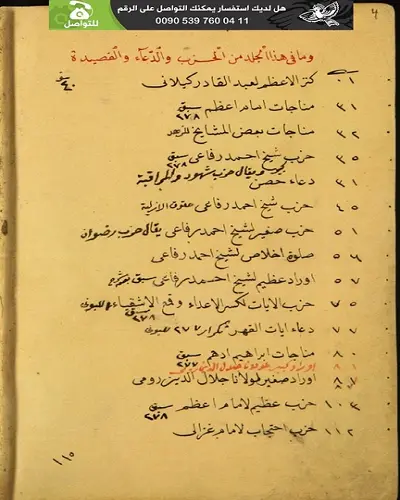 هل لديك استفسار يمكنك التواصل على الرقم
0090 539 760 04 11
للتواصل
٤
وما فى هذا المجلد من الحزب والدعاء والقصيدة
٠١ كنز الاعظم لعبد القادر كيلانى
٣١ مناجات امام اعظم سبق ٢٧٨
٣٢ مناجات بعض المشايخ
٣٥ حزب شيخ احمد رفاعى سبق ٢٧٨
ويقال حزب شهود والمراقبة
٣١ دعاء حصن
٤٥ حزب شيخ احمد رفاعى
٥١ حزب صغير لشيخ احمد رفاعى يقال حزب رضوان
٥٦ صلوة اخلاص لشيخ احمد رفاعى
٥٧ اوراد عظيم لشيخ احمد رفاعى سبق
٧٥ حزب الايات لكسر الاعداء وقع الاشقياء للبونى
سبق ٢٧٨
٧٧ دعاء ايات القهر تكرار ٢٧٧ للبونى
٨٠ مناجات ابراهيم ادهم سبق ٢٧٧
٨٧ اوراد صغير لمولانا جلال الدين رومى
١٠٣ حزب عظيم لامام اعظم سبق ٢٧٨
١١٢ حزب احتجاب لامام غزالى
١١٥